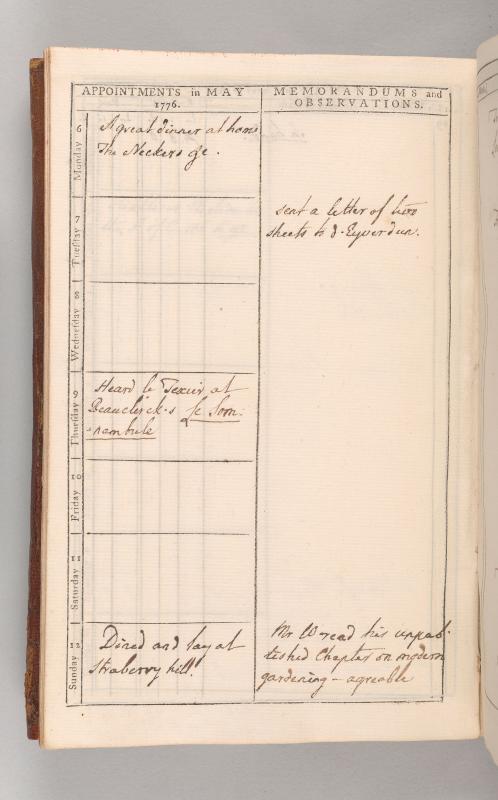 APPOINTMENTS in MAY
1776.
MEMORANDUMS and
OBSERVATIONS.
Monday 6
A great dinner at home
The Neckers &c.
Tuesday 7
sent a letter of two
sheets to d'Eyverdun.
Wednesday 8
Thursday 9
Heard le Texier at
Beauclerck's Le Som-
-nambule
Friday 10
Saturday 11
Sunday 12
Dined and lay at
Straberry hill.
Mr W read his unpub-
lished Chapter on modern
gardening - agreable